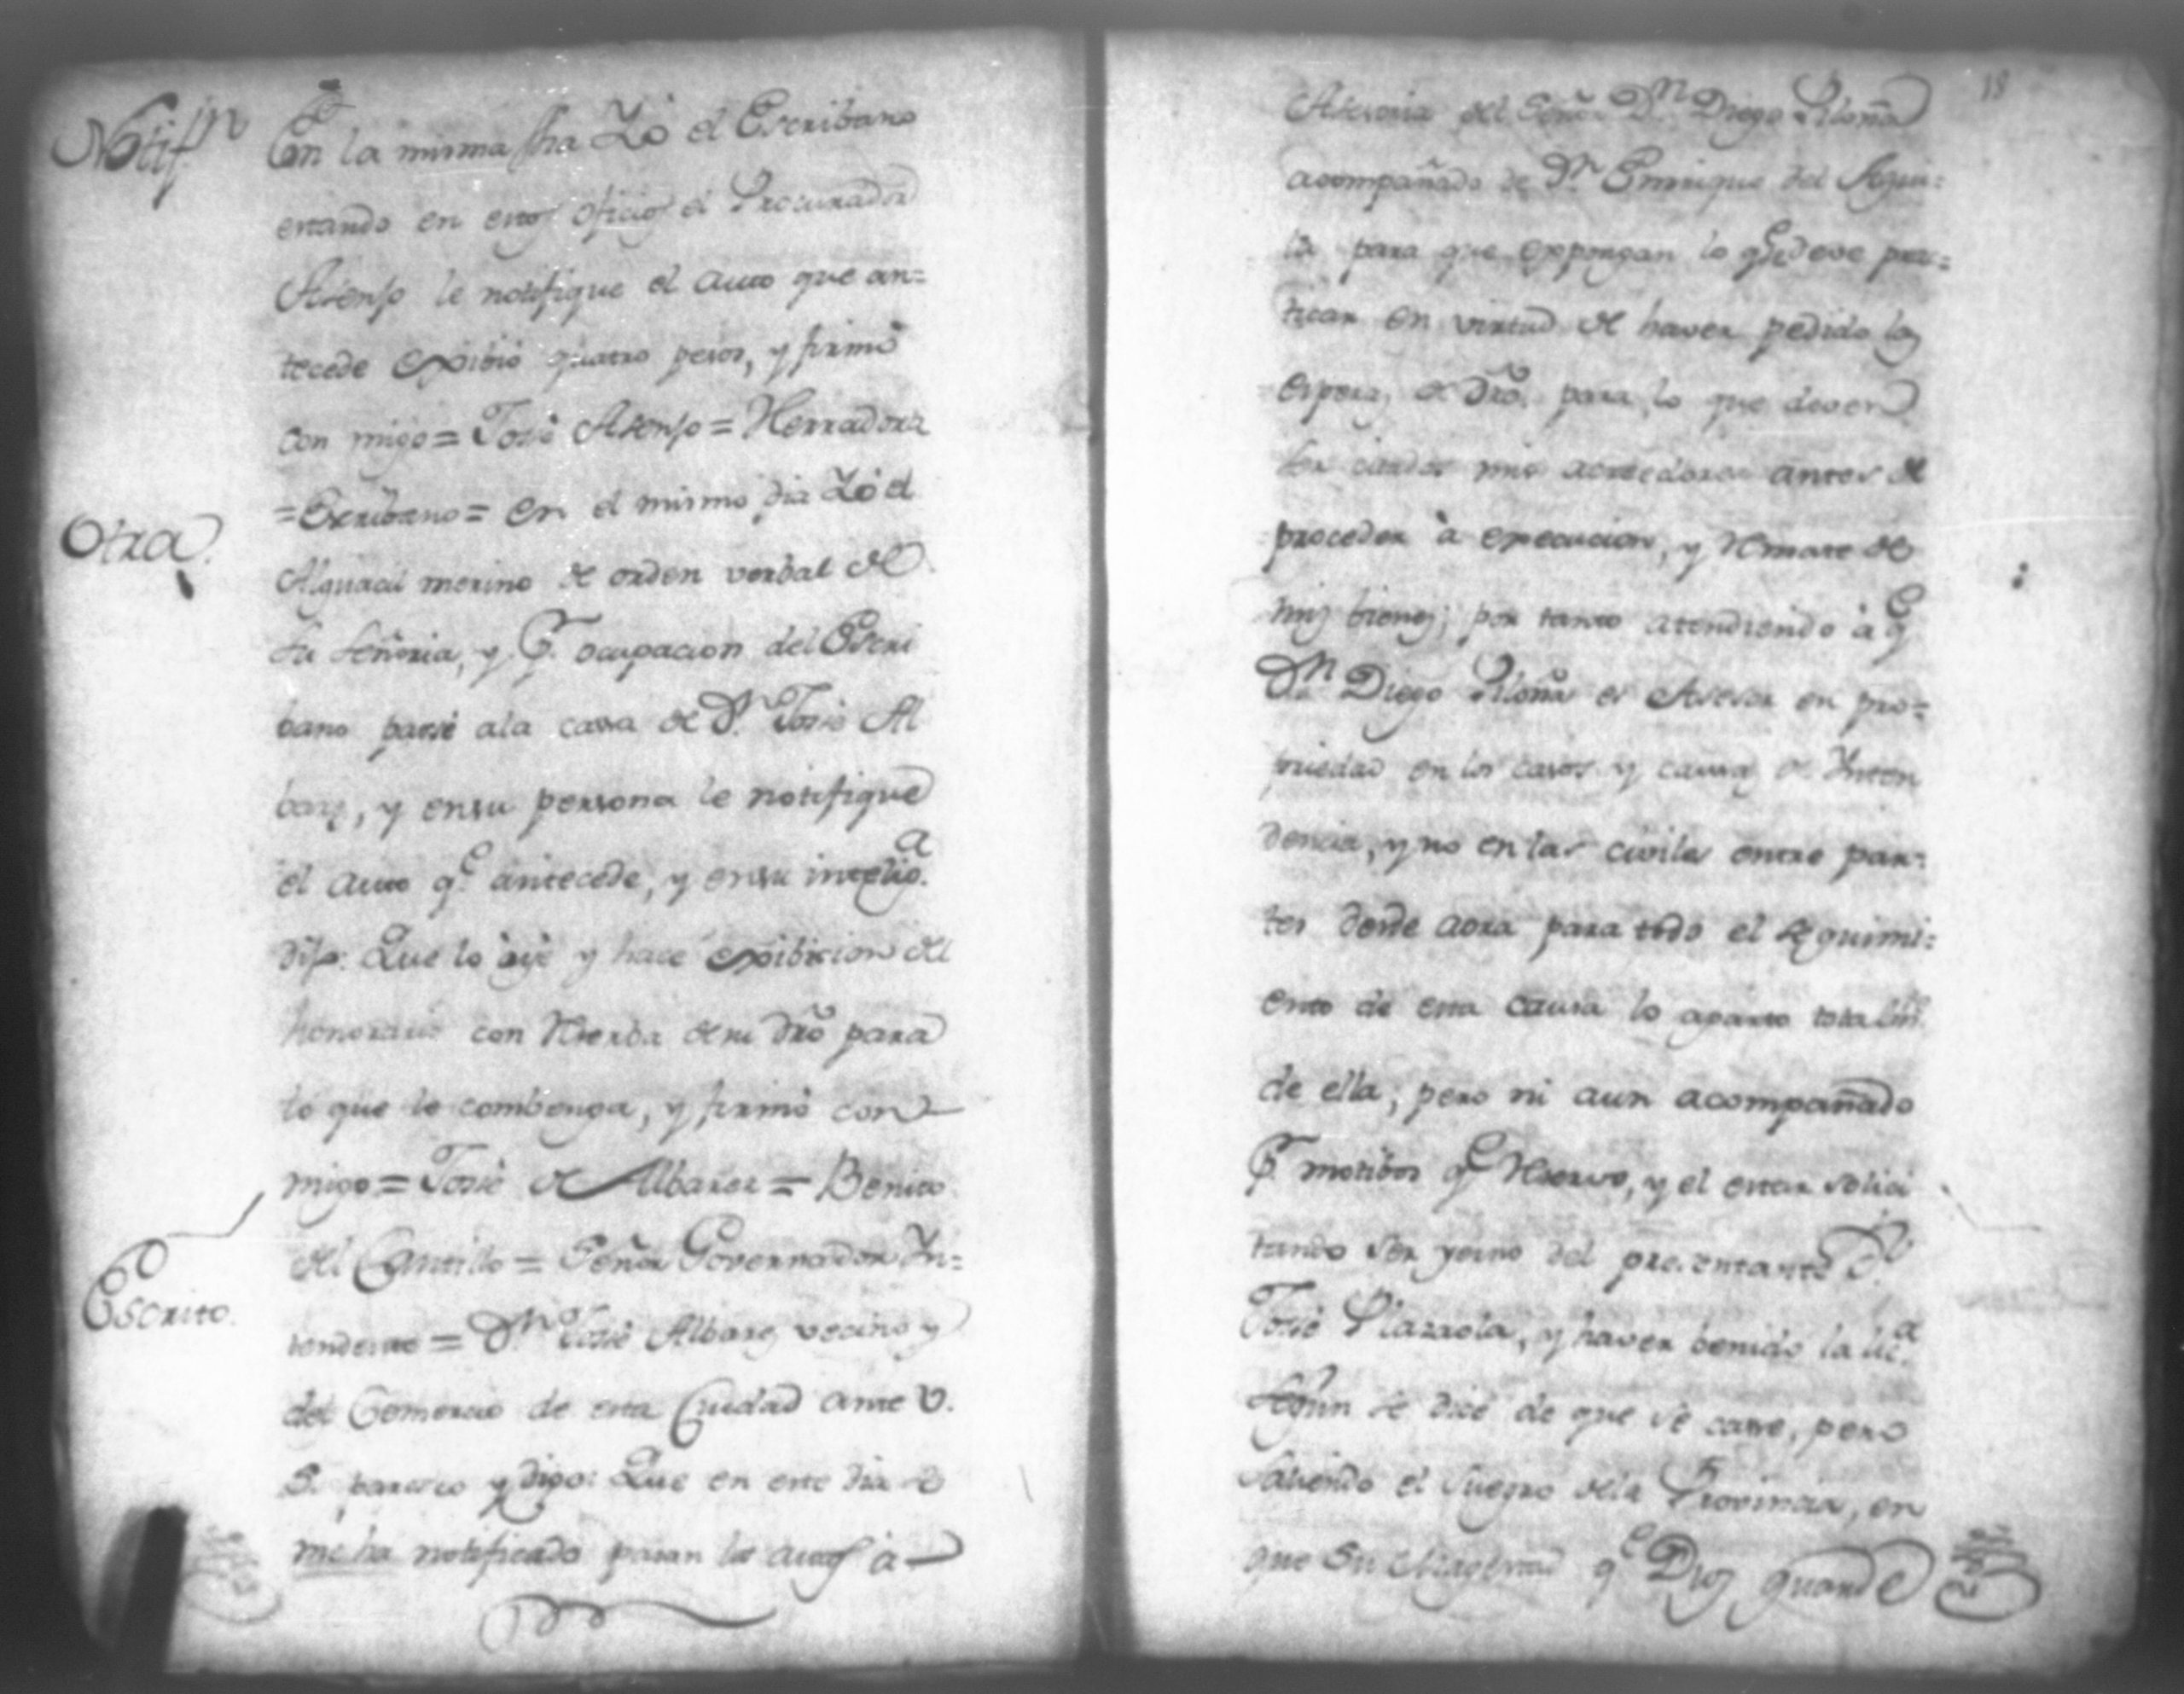 Notif.n En la misma fha Yo el Escribano
estando en estos oficios el Procurador
Asenjo le notifique el auto que an=
tecede exsibió quatro pesos, y firmó
con migo = José Asenjo = Herradora
Otra. = Escribano = En el mismo dia Yo el
Alguacil merino de orden verbal de
su señoria, y P.r ocupacion del Escri
bano pasé ala cassa de D.n José Al
bares, y ensu persona le notifique
el auto q.e antecede, y ensu intelig.a
dijo: Que lo oye y hace exsibicion del
honorario con reserba de su dro para
lo que le combenga, y firmó con
migo = José de Albares = Benito
del Castillo = Escrito. Señor Governador In=
tendente = D.n José Albares vecino y
del Comercio de esta Ciudad ante V.
S. paresco y digo: Que en este dia se
me ha notificado pasan los autos á
18
Asesoria del Señor D.n Diego Piloña
acompañado de D.n Enrrique del Agui=
la para que expongan lo q.e se deve prac=
ticar en virtud de haver pedido las
esperas de dro. para lo que deven
ser citados mis acreedores antes de
proceder à execucion, y remate de
mis bienes; por tanto atendiendo à q.e
D.n Diego Piloña es Asesor en pro=
priedad en los casos y causas de Inten
dencia, y no en las civiles entre par=
tes desde aora para todo el seguimi=
ento de esta causa lo aparto totalm.te
de ella; pero ni aun acompañado
P.r motibos q.e reservo, y el estar solici
tando ser yerno del presentante D.n
José Plazaola, y haver benido la lic.a
segun se dice de que se casse, pero
saliendo el suegro dela Provincia, en
que Su Magestad q.e Dios guarde